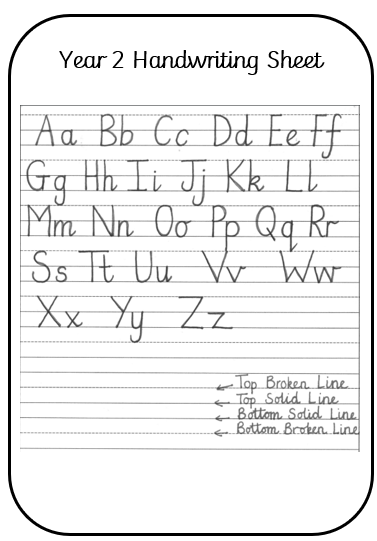 Year 2 Handwriting Sheet
Aa Bb Cc Dd Ee Ff
Gg Hh Ii Jj Kk Ll
Mm Nn Oo Pp Qq Rr
Ss Tt Uu Vv Ww
Xx Yy Zz
Top Broken Line
Top Solid Line
Bottom Solid Line
Bottom Broken Line